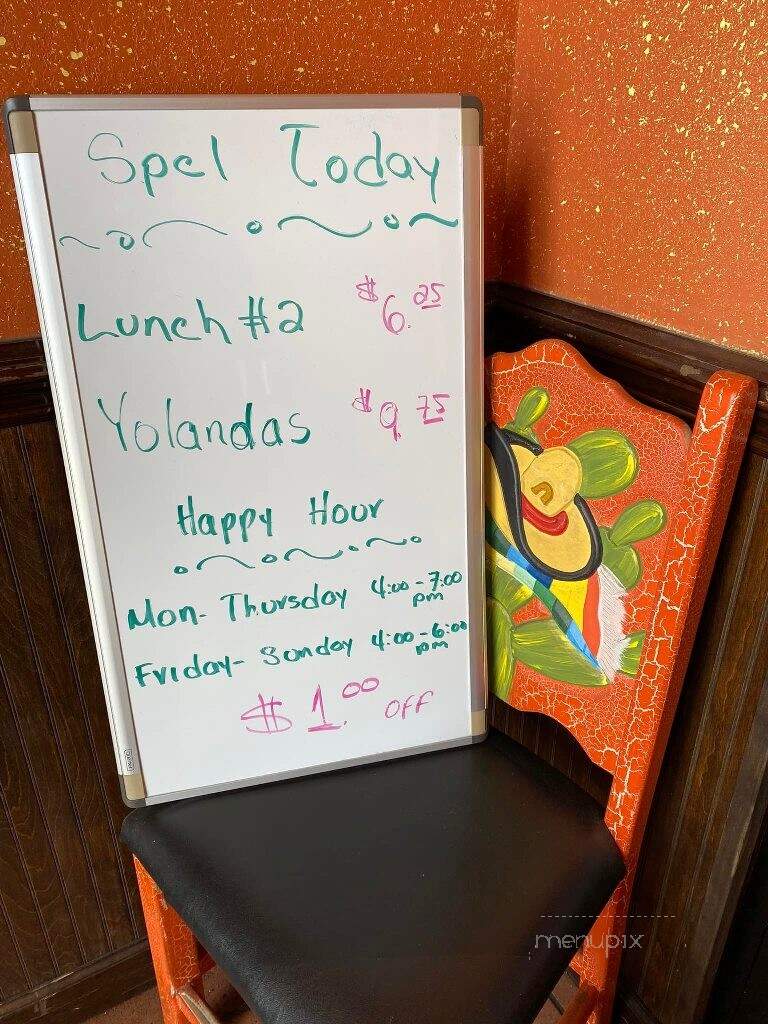 Spcl Today
Lunch #2 $6.25
Yolandas $9.75
Happy Hour
Mon- Thursday 4:00-7:00 pm
Friday- Sonday 4:00-6:00 pm
$1.00 OFF
menupix